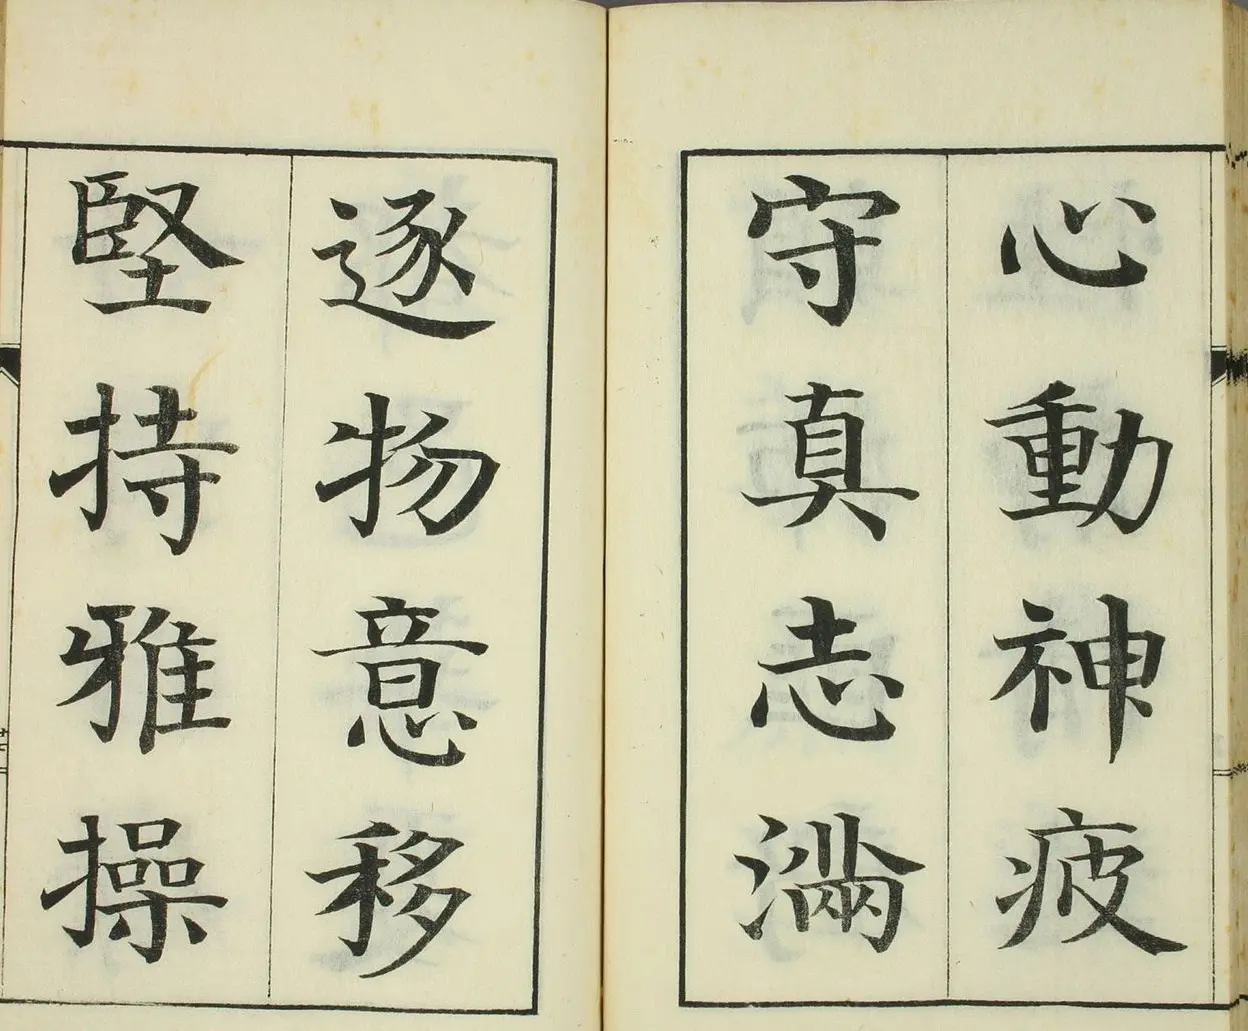 心動神疲
守真志滿
逐物意移
堅持雅操